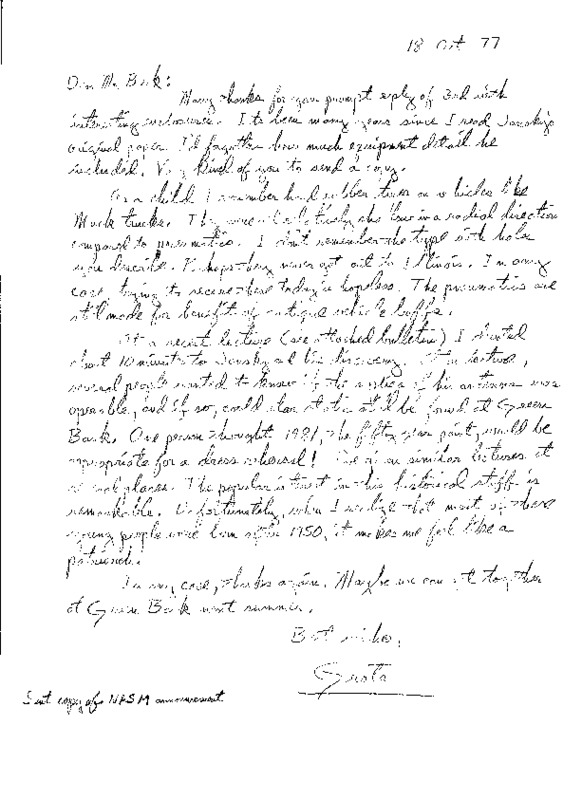 18 Oct 77
Dear Mr. Beck:
Many thanks for your prompt reply of 3rd with
interesting enclosures. It's been many years since I read Jansky's
original paper. I'd forgotten how much equipment detail he
included. Very kind of you to send a copy.
As a child I remember hard rubber tires on vehicles like
Mack trucks. They were relatively thin in a radial direction
compared to pneumatics. I don't remember the type with holes
you describe. Perhaps they never got out to Illinois. In any
case trying to recover these today is hopeless. The pneumatics are
still made for benefit of antique vehicle buffs.
At a recent lecture (see attached bulletin) I devoted
about 10 minutes to Jansky and his discovery. After lecture,
several people wanted to know if the replica of his antenna was
operable, and if so, could star static still be found at Green
Bank. One person thought 1981, the fifty year point, would be
appropriate for a dress rehearsal! I've given similar lectures at
several places. The popular interest in this historical stuff is
remarkable. Unfortunately, when I realize that most of these
young people were born after 1950, it makes me feel like a
patriarch.
In any case, thanks again. Maybe we can get together
at Green Bank next summer.
Best wishes,
Grote
Sent copy of NRSM announcement